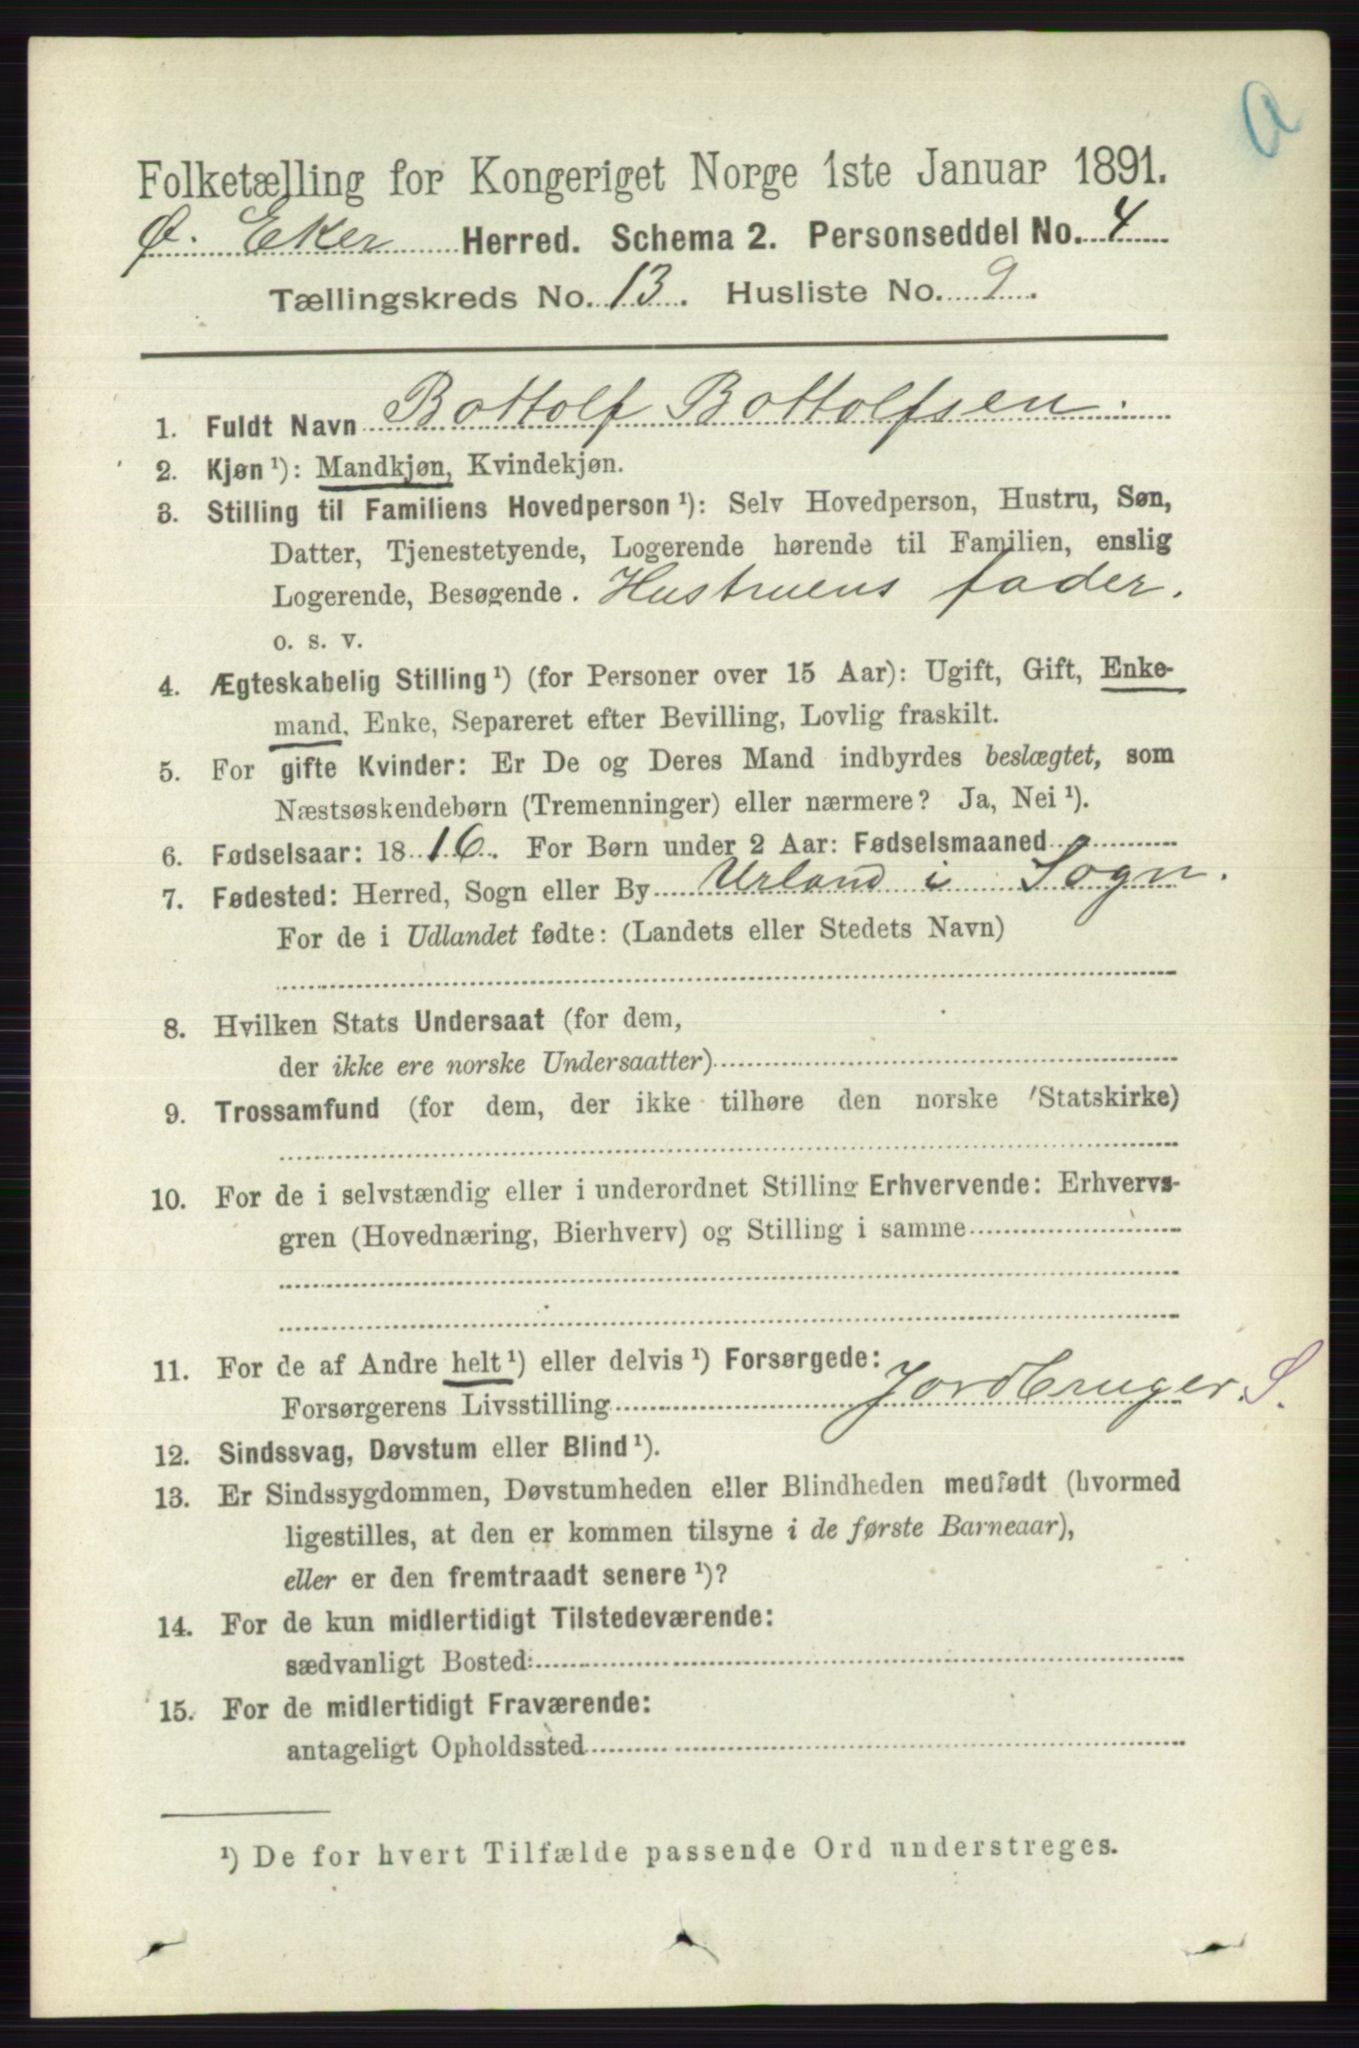 a
Folketælling for Kongeriget Norge 1ste Januar 1891.
Ø. Eker Herred. Schema 2. Personseddel No. 4
Tællingskreds No. 13. Husliste No. 9.
1. Fuldt Navn Bottolf Bottolfsen.
2. Kjøn ¹): Mandkjøn, Kvindekjøn.
3. Stilling til Familiens Hovedperson ¹): Selv Hovedperson, Hustru, Søn,
Datter, Tjenestetyende, Logerende hørende til Familien, enslig
Logerende, Besøgende. Hustruens fader.
o. s. v.
4. Ægteskabelig Stilling ¹) (for Personer over 15 Aar): Ugift, Gift, Enke-
mand, Enke, Separeret efter Bevilling, Lovlig fraskilt.
5. For gifte Kvinder: Er De og Deres Mand indbyrdes beslægtet, som
Næstsøskendebørn (Tremenninger) eller nærmere? Ja, Nei ¹).
6. Fødselsaar: 1816. For Børn under 2 Aar: Fødselsmaaned
7. Fødested: Herred, Sogn eller By Urland i Sogn.
For de i Udlandet fødte: (Landets eller Stedets Navn)
8. Hvilken Stats Undersaat (for dem,
der ikke ere norske Undersaatter)
9. Trossamfund (for dem, der ikke tilhøre den norske Statskirke)
10. For de i selvstændig eller i underordnet Stilling Erhvervende: Erhvervs-
gren (Hovednæring, Bierhverv) og Stilling i samme
11. For de af Andre helt ¹) eller delvis ¹) Forsørgede:
Forsørgerens Livsstilling Jordbruger. S.
12. Sindssvag, Døvstum eller Blind ¹).
13. Er Sindssygdommen, Døvstumheden eller Blindheden medfødt (hvormed
ligestilles, at den er kommen tilsyne i de første Barneaar),
eller er den fremtraadt senere ¹)?
14. For de kun midlertidigt Tilstedeværende:
sædvanligt Bosted:
15. For de midlertidigt Fraværende:
antageligt Opholdssted
¹) De for hvert Tilfælde passende Ord understreges.